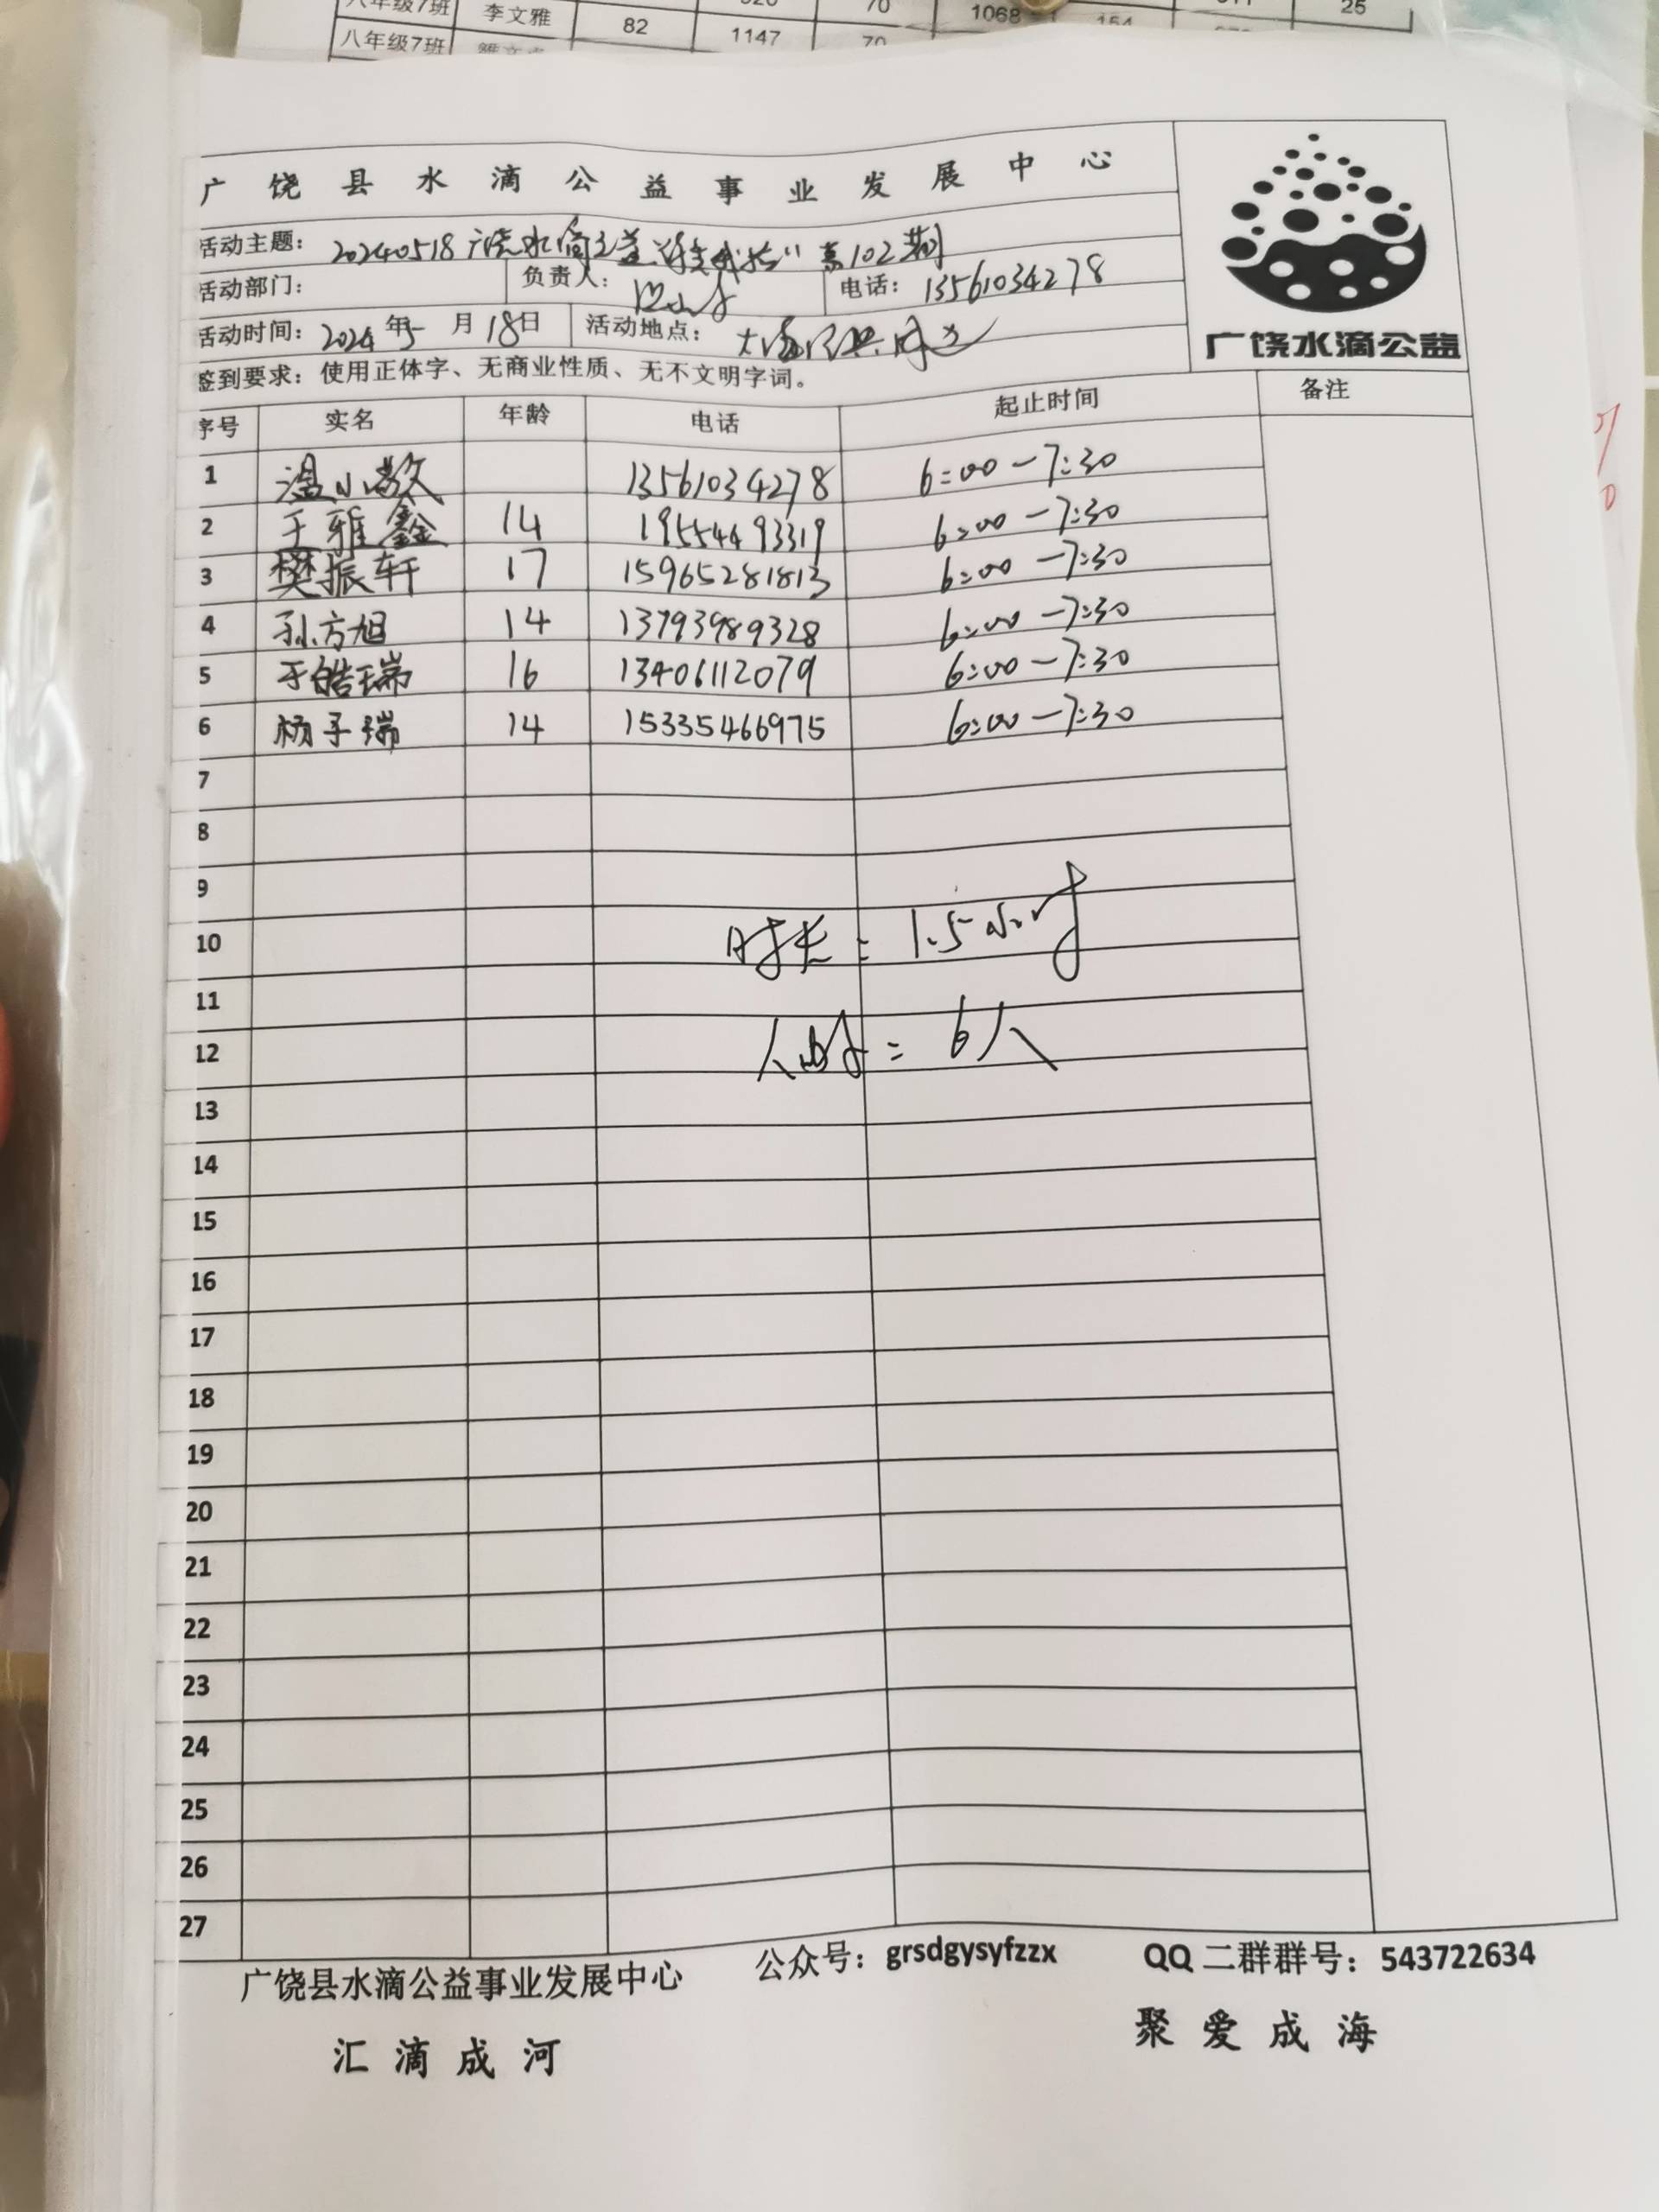 八年级7班 李文雅 70 1068 25
八年级7班 82 1147 70 154
广饶县水滴公益事业发展中心
活动主题：20240518广饶水滴公益 第102期
活动部门： 负责人： 电话：13561034278
活动时间：2024年5月18日 活动地点：
签到要求：使用正体字、无商业性质、无不文明字词。
广饶水滴公益
序号 实名 年龄 电话 起止时间 备注
1 温小敬 13561034278 6:00-7:30
2 于雅鑫 14 19554493319 6:00-7:30
3 樊振轩 17 15965281813 6:00-7:30
4 孙方旭 14 13793989328 6:00-7:30
5 于皓瑞 16 13406112079 6:00-7:30
6 杨子瑞 14 15335466975 6:00-7:30
7
8
9
10 时长：1.5小时
11
12 人数：6人
13
14
15
16
17
18
19
20
21
22
23
24
25
26
27
广饶县水滴公益事业发展中心 公众号：grsdgysyfzzx QQ二群群号：543722634
汇滴成河 聚爱成海